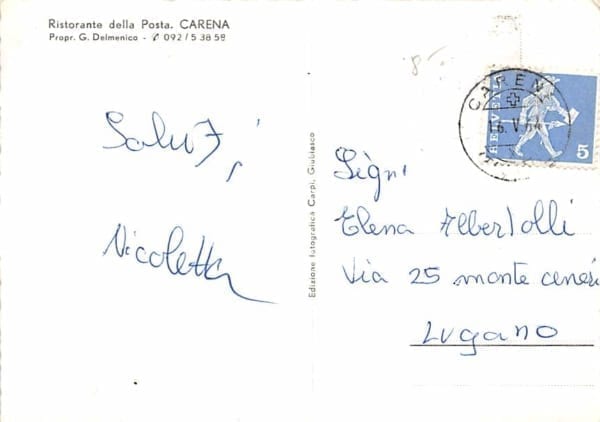 Ristorante della Posta. CARENA
Propr. G. Delmenico - ✆ 092/5 38 58
Saluti,
Nicoletta
Edizione fotografica Carpi, Giubiasco
CARENA
HELVETIA
5
Signi
Elena Albertolli
Via 25 monte ceneri
Lugano